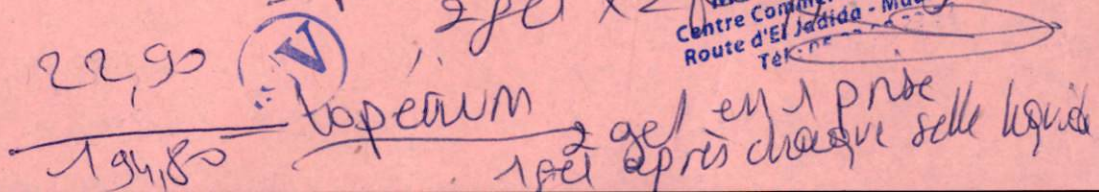 2 gel x 2
Centre Comm
Route d'El Jadida - Ma
Tél :
22,90 V
lopérium 2 gel en 1 prise
194,80 1 gel après chaque selle liquide